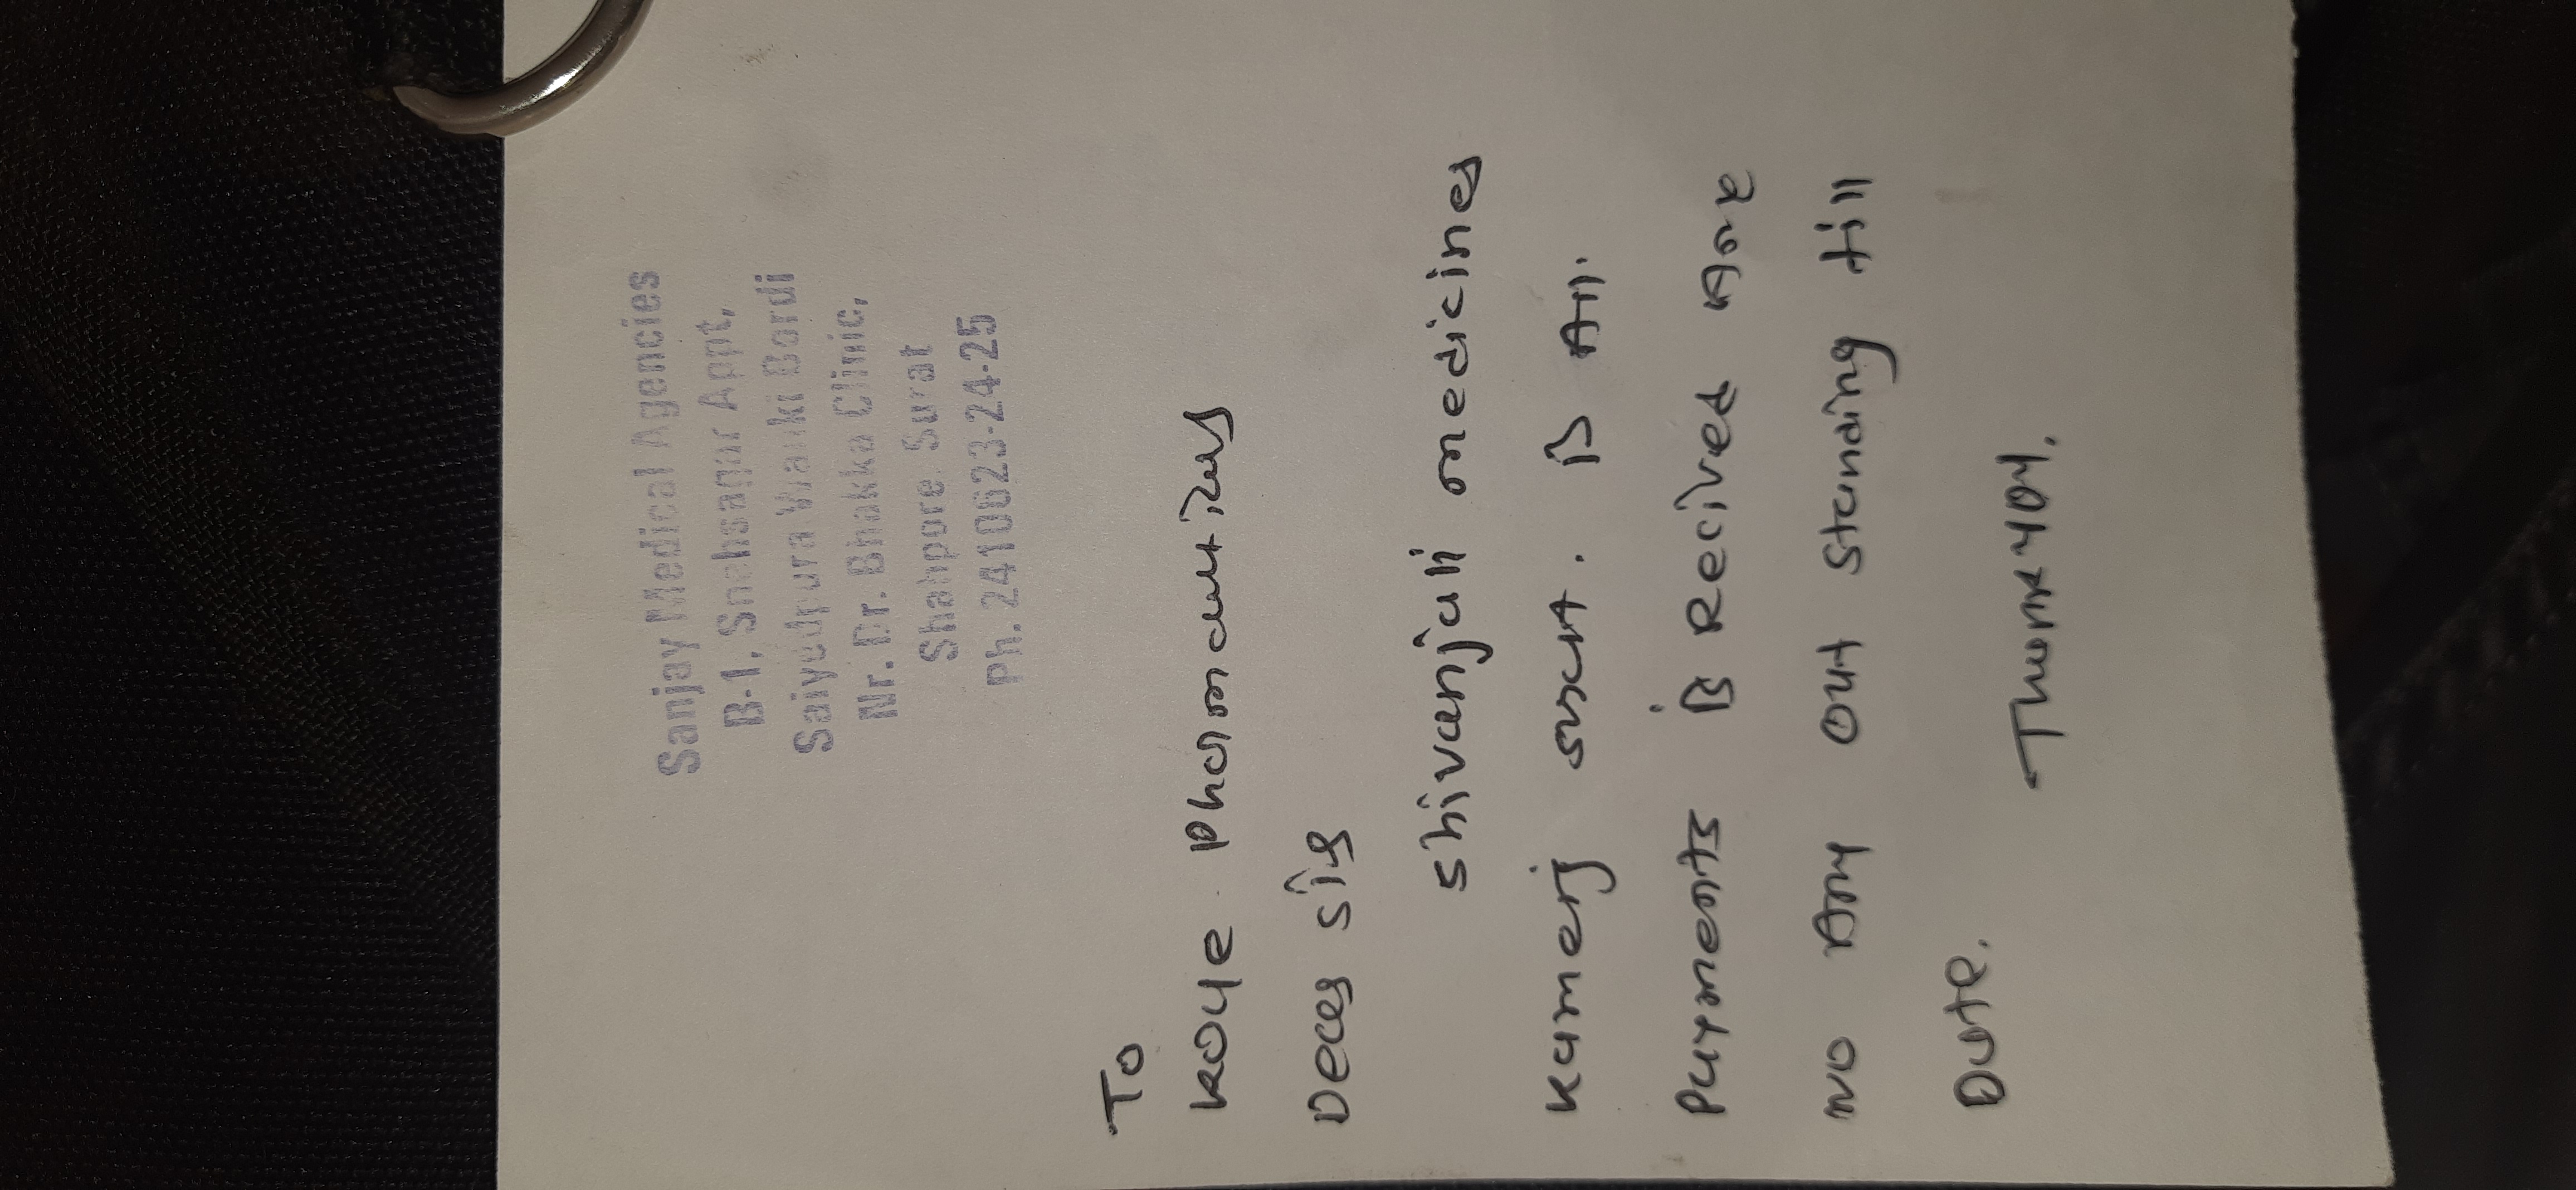 Sanjay Medical Agencies
B-1, Snehsagar Appt,
Saiyedpura Wanki Bordi
Nr. Dr. Bhakka Clinic,
Shahpore. Surat
Ph. 2410623-24-25
To
Dear sir
shivanjali medicines
Kamrej surat. is All.
Payments is Recived Are
no Any out standing till
Date.